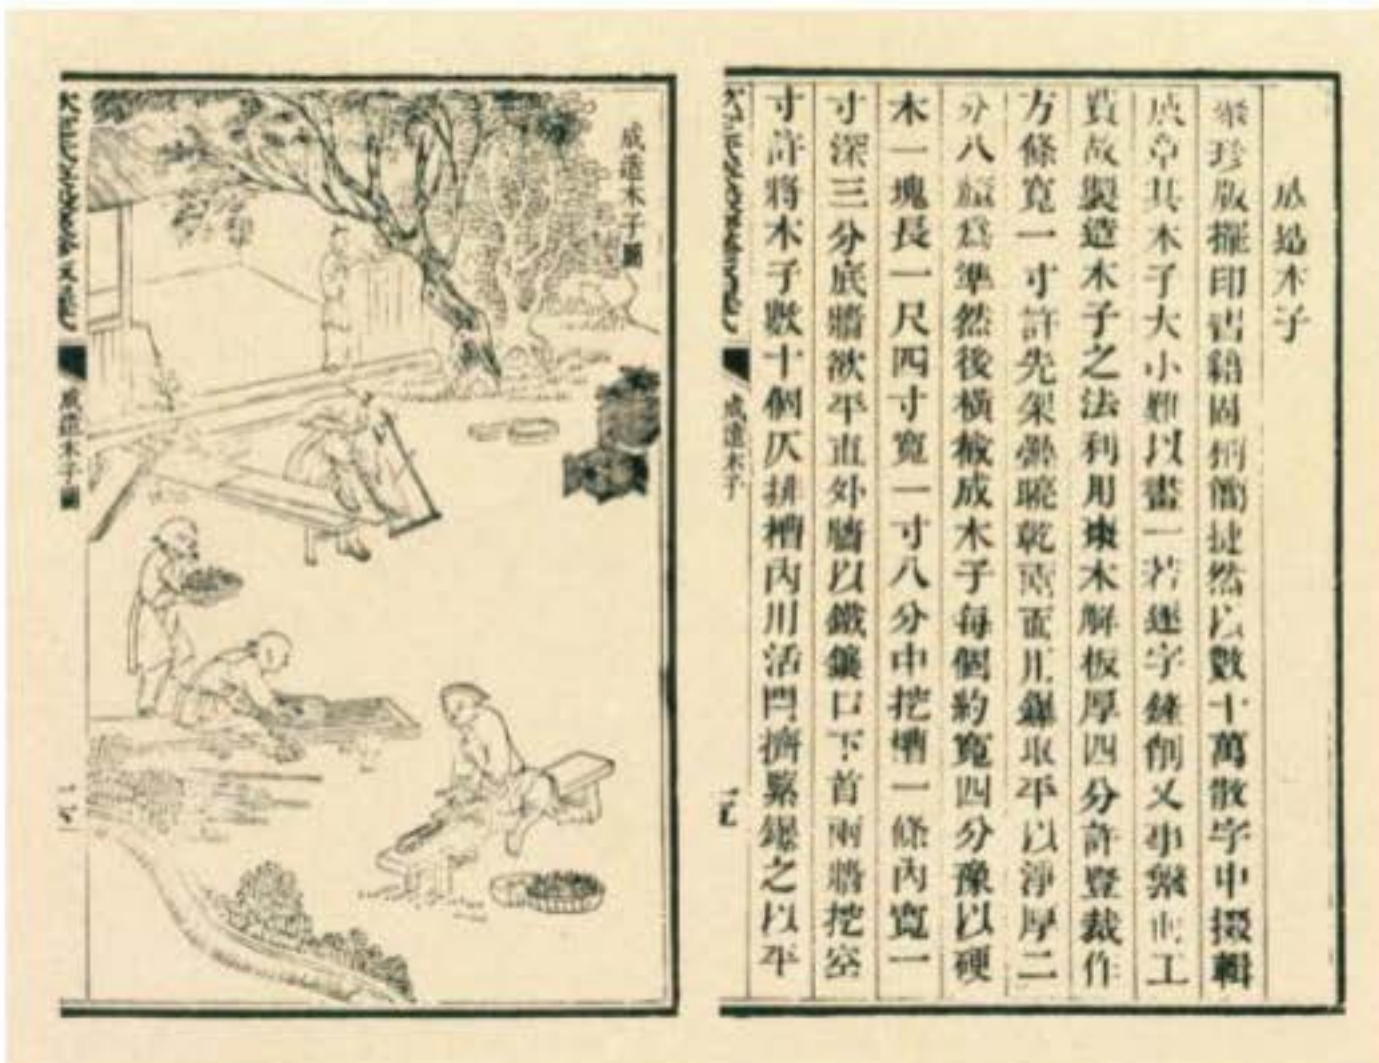 成造木子
聚珍版擺印書籍固稱簡捷然以數十萬散字中掇輯
成章其木子大小難以畫一若逐字鏟削又事繁而工
費故製造木子之法利用棗木解板厚四分許豎裁作
方條寬一寸許先架疊晾乾兩面用鏍取平以淨厚二
分八釐為準然後橫截成木子每個約寬四分豫以硬
木一塊長一尺四寸寬一寸八分中挖槽一條內寬一
寸深三分底牆欲平直外牆以鐵鑲口下首兩牆挖空
寸許將木子數十個仄排槽內用活閂擠緊鏍之以平
成造木子
成造木子圖
成造木子圖